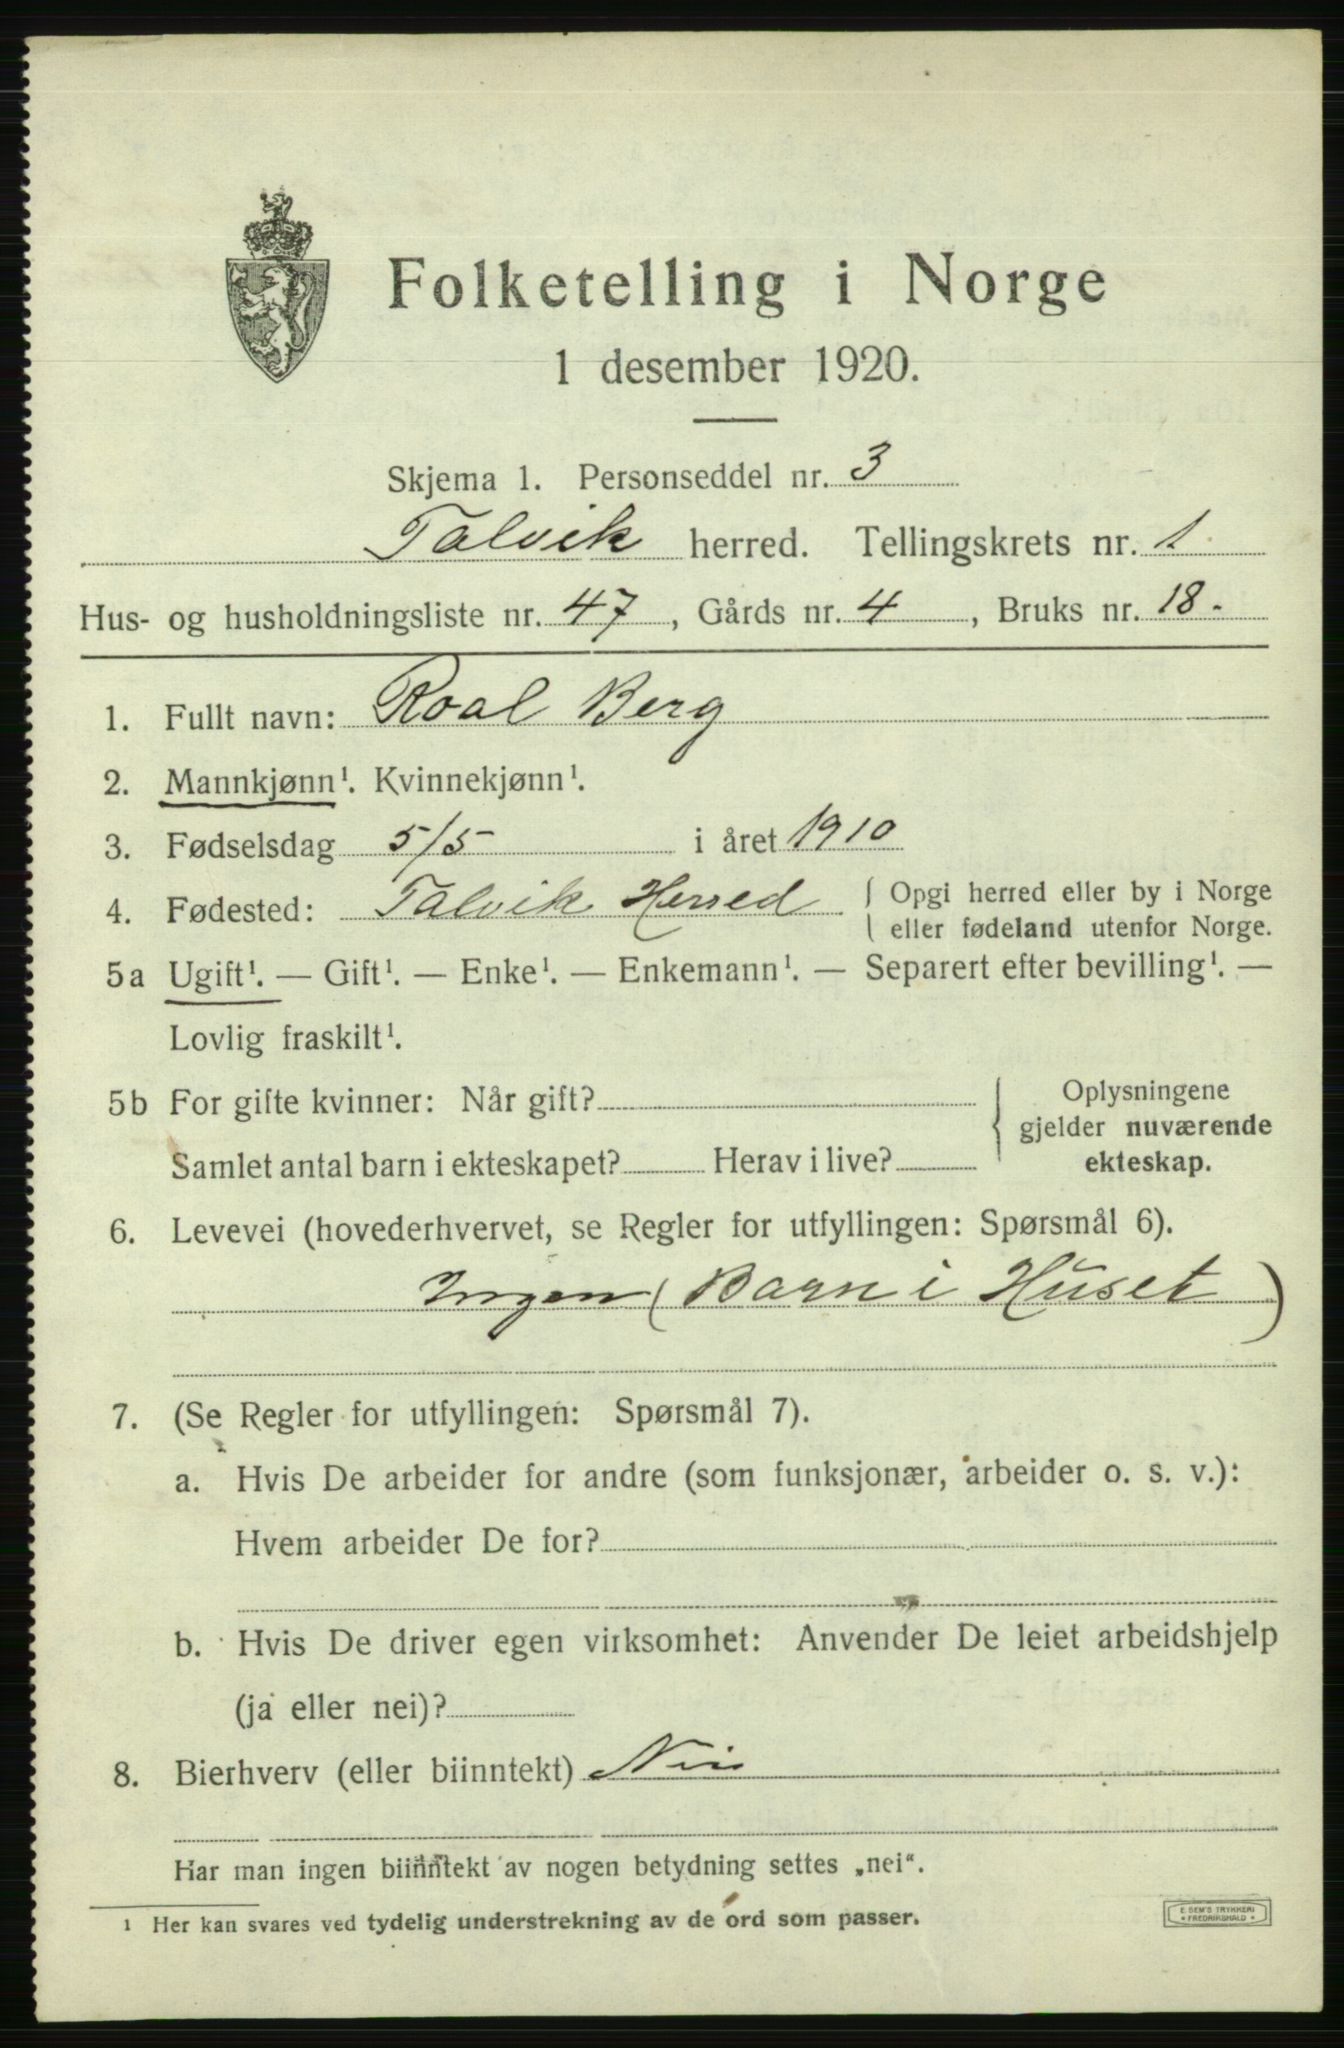 Folketelling i Norge
1 desember 1920.
Skjema 1. Personseddel nr. 3
Talvik herred. Tellingskrets nr. 1
Hus- og husholdningsliste nr. 47, Gårds nr. 4, Bruks nr. 18.
1. Fullt navn: Roal Berg
2. Mannkjønn¹. Kvinnekjønn¹.
3. Fødselsdag 5/5 i året 1910
4. Fødested: Talvik Herred { Opgi herred eller by i Norge
eller fødeland utenfor Norge.
5a Ugift¹. — Gift¹. — Enke¹. — Enkemann¹. — Separert efter bevilling¹. —
Lovlig fraskilt¹.
5b For gifte kvinner: Når gift? { Oplysningene
gjelder nuværende
Samlet antal barn i ekteskapet? Herav i live? ekteskap.
6. Levevei (hovederhvervet, se Regler for utfyllingen: Spørsmål 6).
Ingen (Barn i Huset)
7. (Se Regler for utfyllingen: Spørsmål 7).
a. Hvis De arbeider for andre (som funksjonær, arbeider o. s. v.):
Hvem arbeider De for?
b. Hvis De driver egen virksomhet: Anvender De leiet arbeidshjelp
(ja eller nei)?
8. Bierhverv (eller biinntekt) Nei
Har man ingen biinntekt av nogen betydning settes „nei“.
¹ Her kan svares ved tydelig understrekning av de ord som passer.
E SEM'S TRYKKERI
• FREDRIKSHALD •